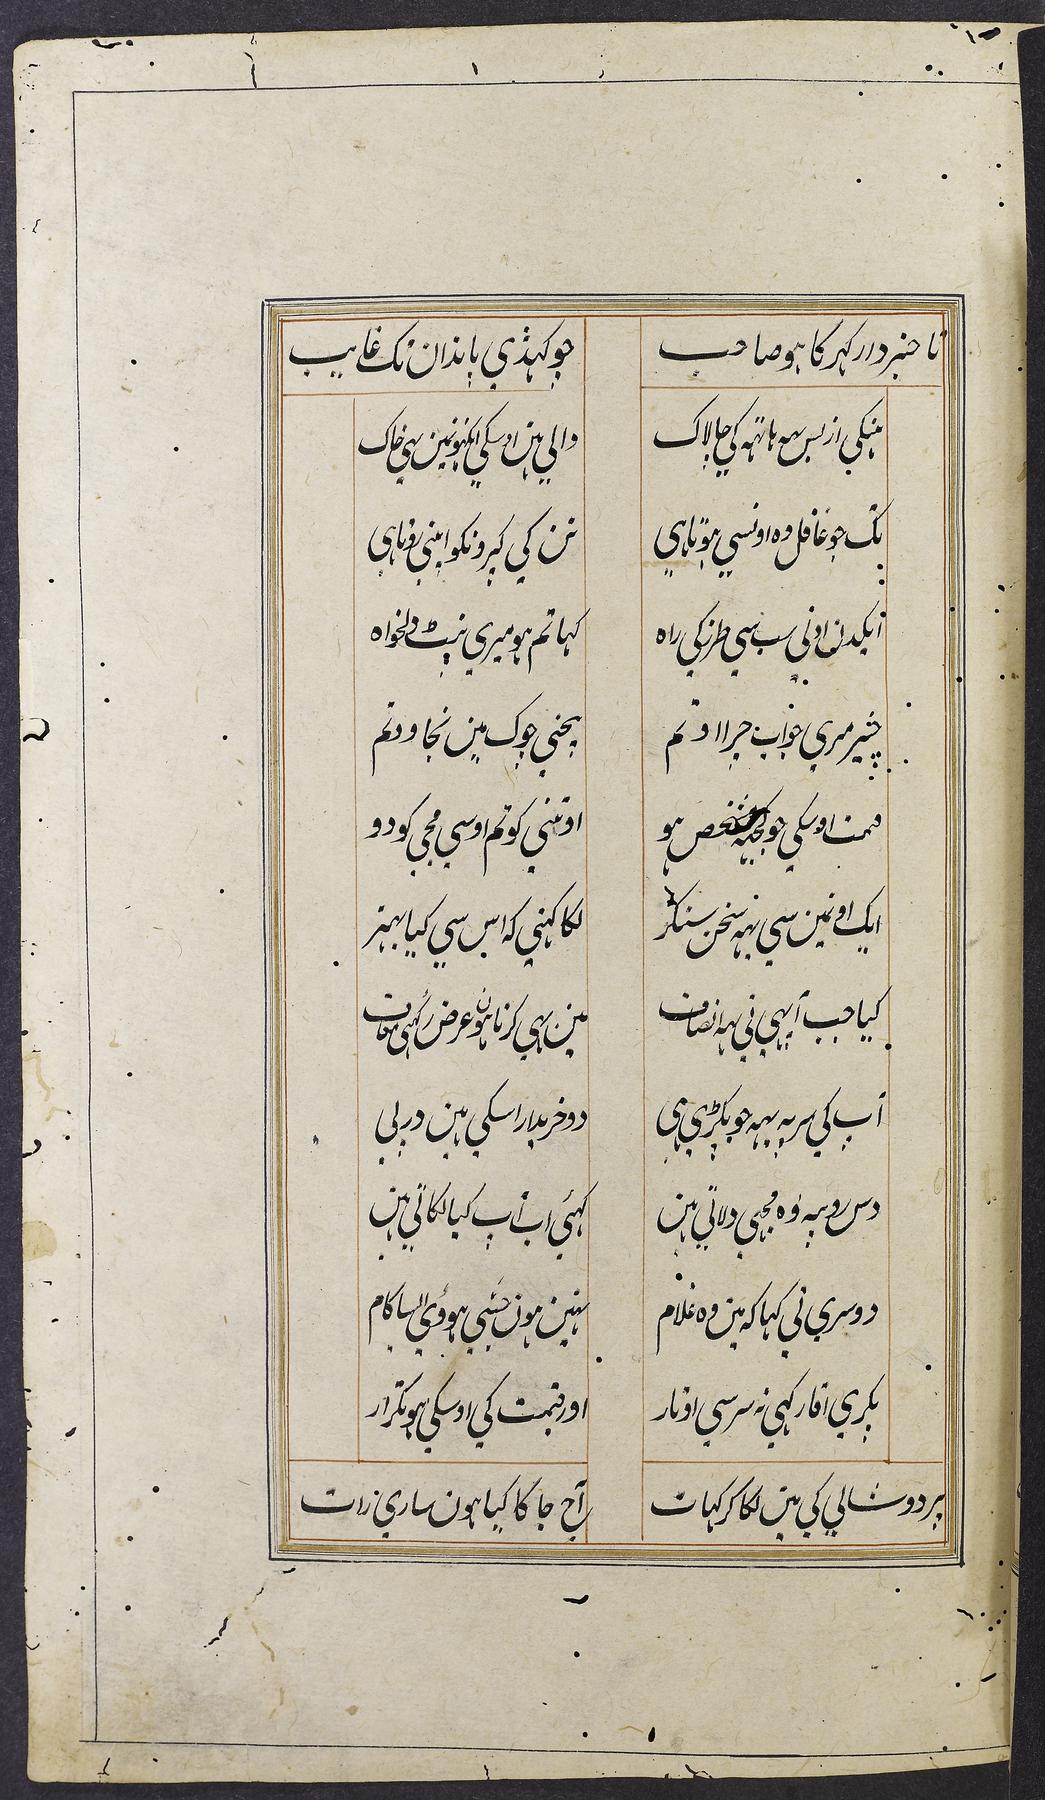 تا خبردار کہر کا ہو صاحب
جو کہڈی پاندان تک غایب
ہنکی از بس ہی ہاتہہ کی چالاک
والی ہین اوسکی انکہونمین بہی خاک
تک جو غافل وہ اونسی ہوتا ہی
تن کی کپرونکو اپنی روتا ہی
ایکدن اونی سب سی طرز کی راہ
کہا تم ہو میری نپٹ دلخواہ
چیز میری خواب چرا او تم
بیچنی چوک مین نجاو تم
قیمت اوسکی جو کچہ مشخص ہو
اوتنی کو تم اوسی مجی کو دو
ایک اونمین سی یہہ سخن سنکر
لکا کہنی کہ اس سی کیا بہتر
کیا جب آپہی نی یہہ انصاف
مین بہی کرتا ہون عرض رکہی معاف
آپ کی سر پہ یہہ جو پکڑی ہی
دو خریدار اسکی ہین در پی
دس روپیہ وہ مجہی دلاتی ہین
کہئی اب آپ کیا لکاتی ہین
دوسری نی کہا کہ مین وہ غلام
نہین ہون جسی ہووی ایسا کام
پکری اقار کہی نہ سر سی اوتار
اور قیمت کی اوسکی ہو تکرار
پر دوشالی کی مین لکا کر کہات
آج جاکا کیا ہون ساری رات